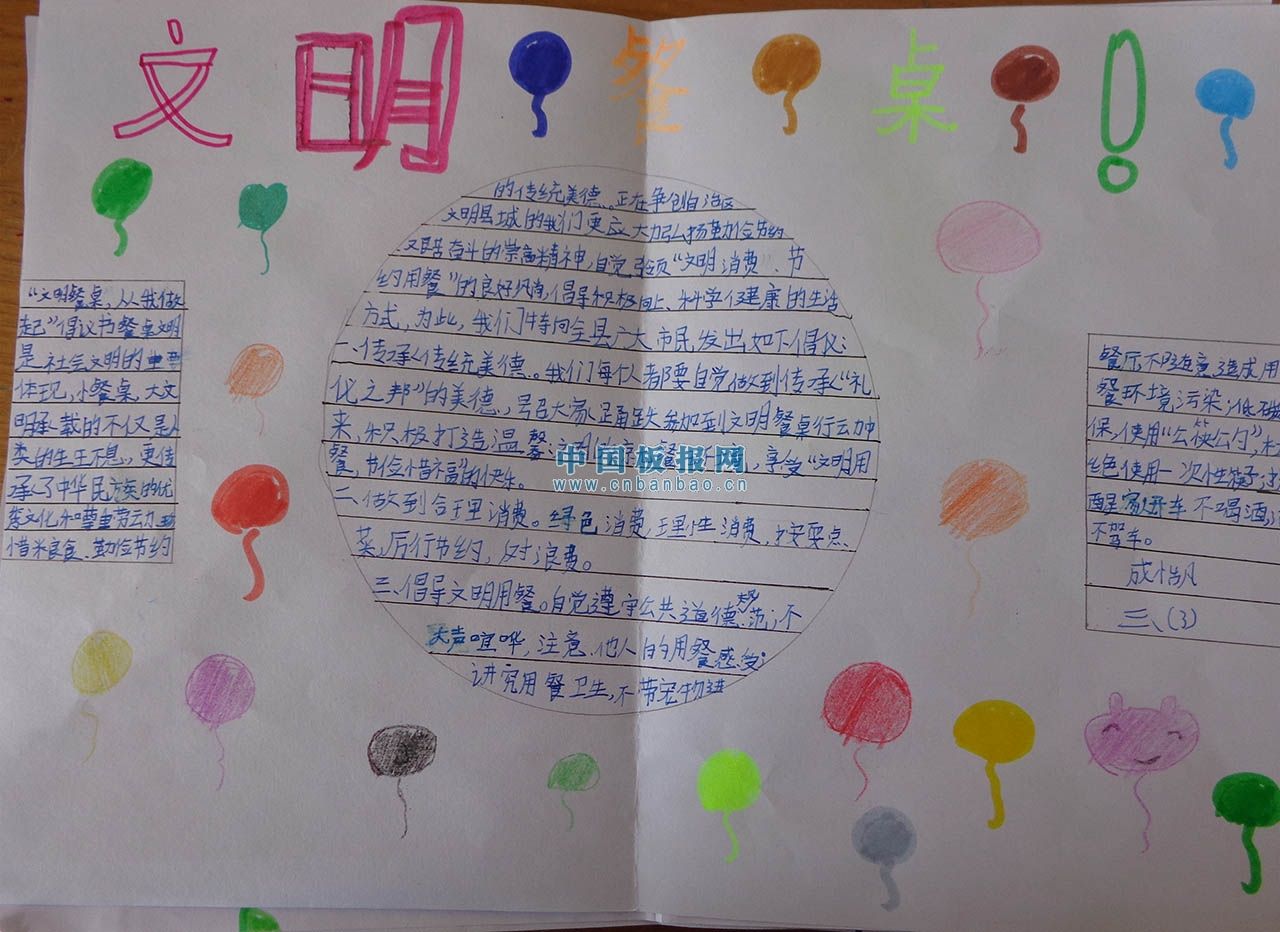 文明餐桌！
"文明餐桌，从我做
起"倡议书餐桌文明
是社会文明的重要
体现，小餐桌，大文
明承载的不仅是人
类的生生不息，更传
承了中华民族的优
秀文化和尊重劳动、珍
惜米良食、勤俭节约
的传统美德。正在争创自治区
文明县城的我们更应大力弘扬勤俭节约
艰苦奋斗的崇高精神，自觉引领"文明消费"、节
约用餐"的良好风尚，倡导积极向上、科学健康的生活
方式，为此，我们特向全县广大市民发出如下倡仪：
一、传承传统美德。我们每仅者都要自觉做到传承"礼
化之邦"的美德，号召大家踊跃参加到文明餐桌行动中
来，积极打造温馨
餐，节俭惜福"的快乐。
享受"文明用
中国板报网
www.cnbanbao.cn
二、做到合理消费。绿色消费，理性消费，按要点
菜，厉行节约，反对浪费。
三、倡导文明用餐。自觉遵守公共道德规范；不
大声喧哗，注意他人的用餐感受；
讲究用餐卫生，不带宠物进
餐厅不随意造成用
餐环境污染；低碳
保，使用"公筷公勺"，杜
绝使用一次性筷子
醒家开车不喝酒，
不驾车。
成恺凡
三、(3)